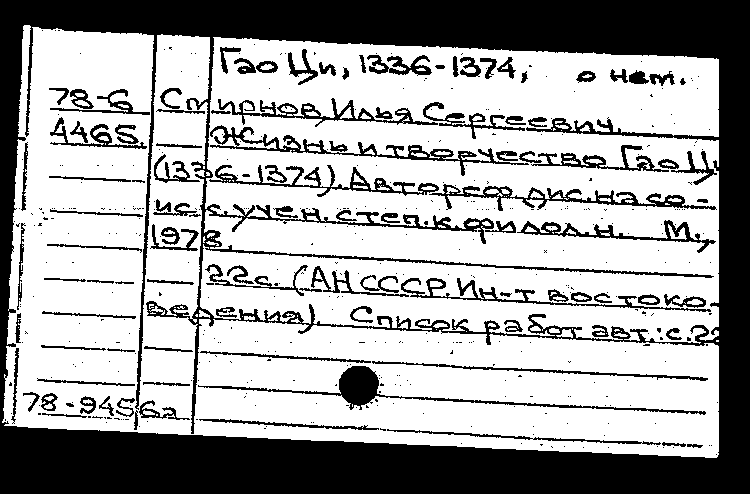 Гао Ци, 1336-1374, о нем.
78-6 Смирнов, Илья Сергеевич.
А465. Жизнь и творчество Гао Ци
(1336-1374). Автореф. дис. на со-
иск. учен. степ. к. филол. н. М.,
1978.
22с. (АН СССР. Ин-т востоко-
ведения). Список работ авт.: с.22
78-9456а